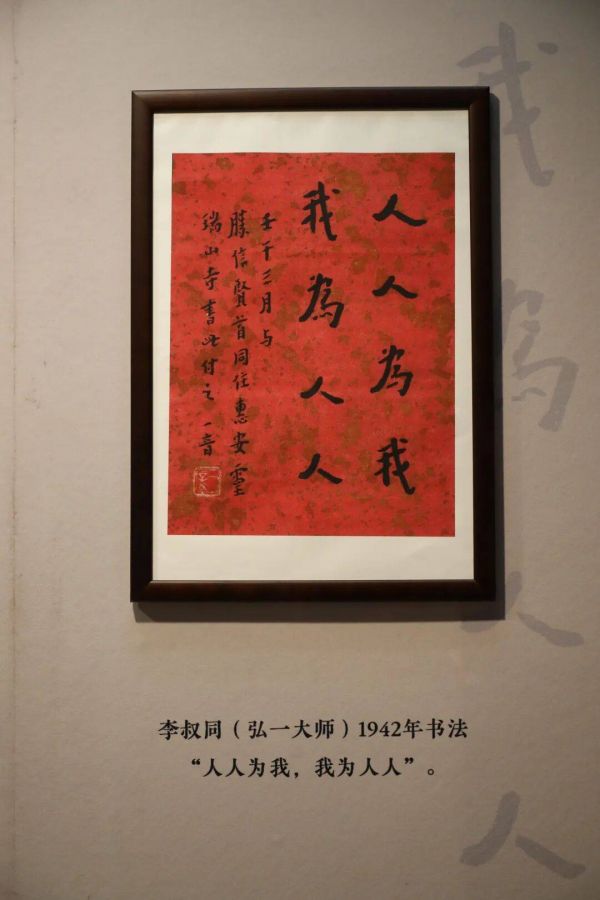 人人為我
我為人人
壬午三月与
勝信賢首同住惠安靈
瑞山寺書此付之 一音
我為人人
李叔同（弘一大师）1942年书法
“人人为我，我为人人”。